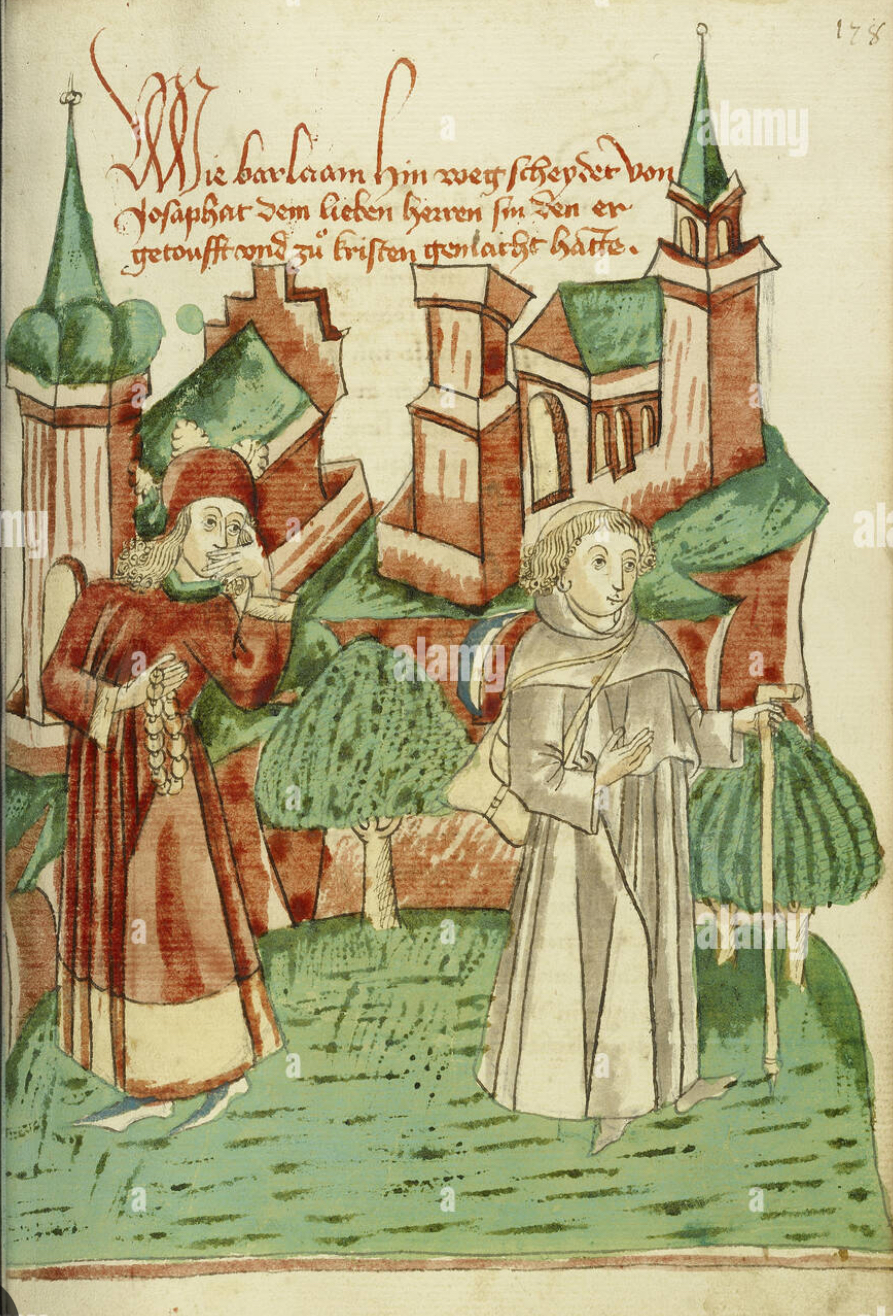 178
Wie barlaam hin weg scheydet von
Josaphat dem lieben herren sin den er
getoufft vnd zů kristen gemacht hatte.
alamy
alamy
alamy
alamy
alamy
a
a
a
a
a
a
a
a
a
a